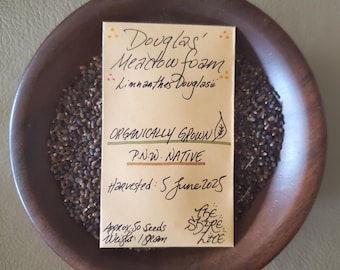 Douglas'
Meadowfoam
Limnanthes Douglasii
ORGANICALLY GROWN
P.N.W. NATIVE
Harvested: 5 June 2025
Approx 50 Seeds
Weight: 1 gram